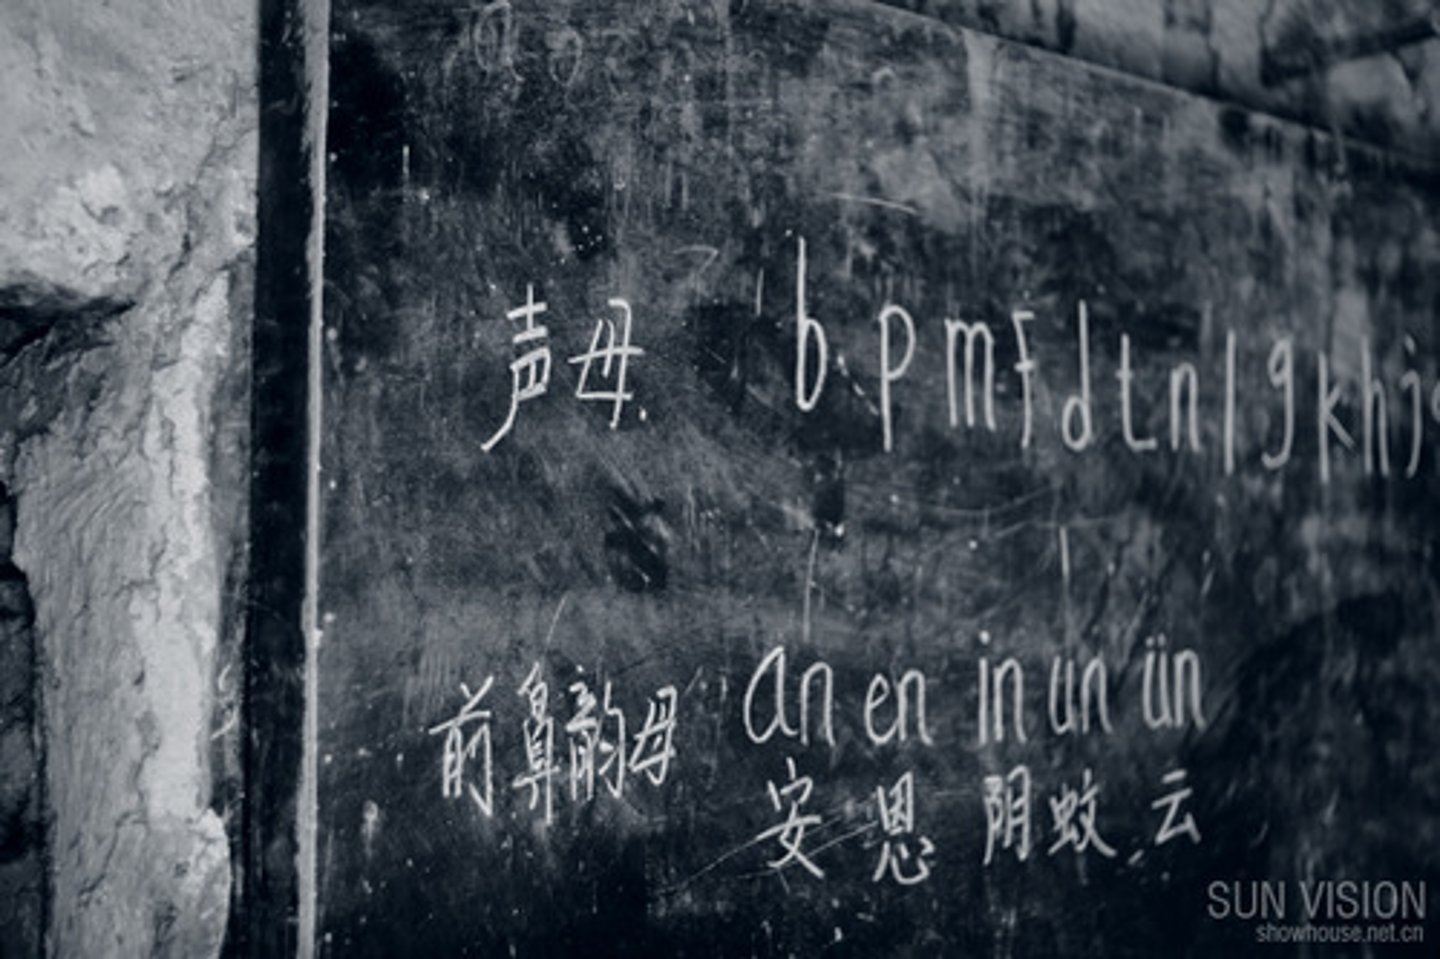 声母 b p m f d t n l g k h j
前鼻韵母 an en in un ün
安 恩 阴 蚊 云
SUN VISION
showhouse.net.cn